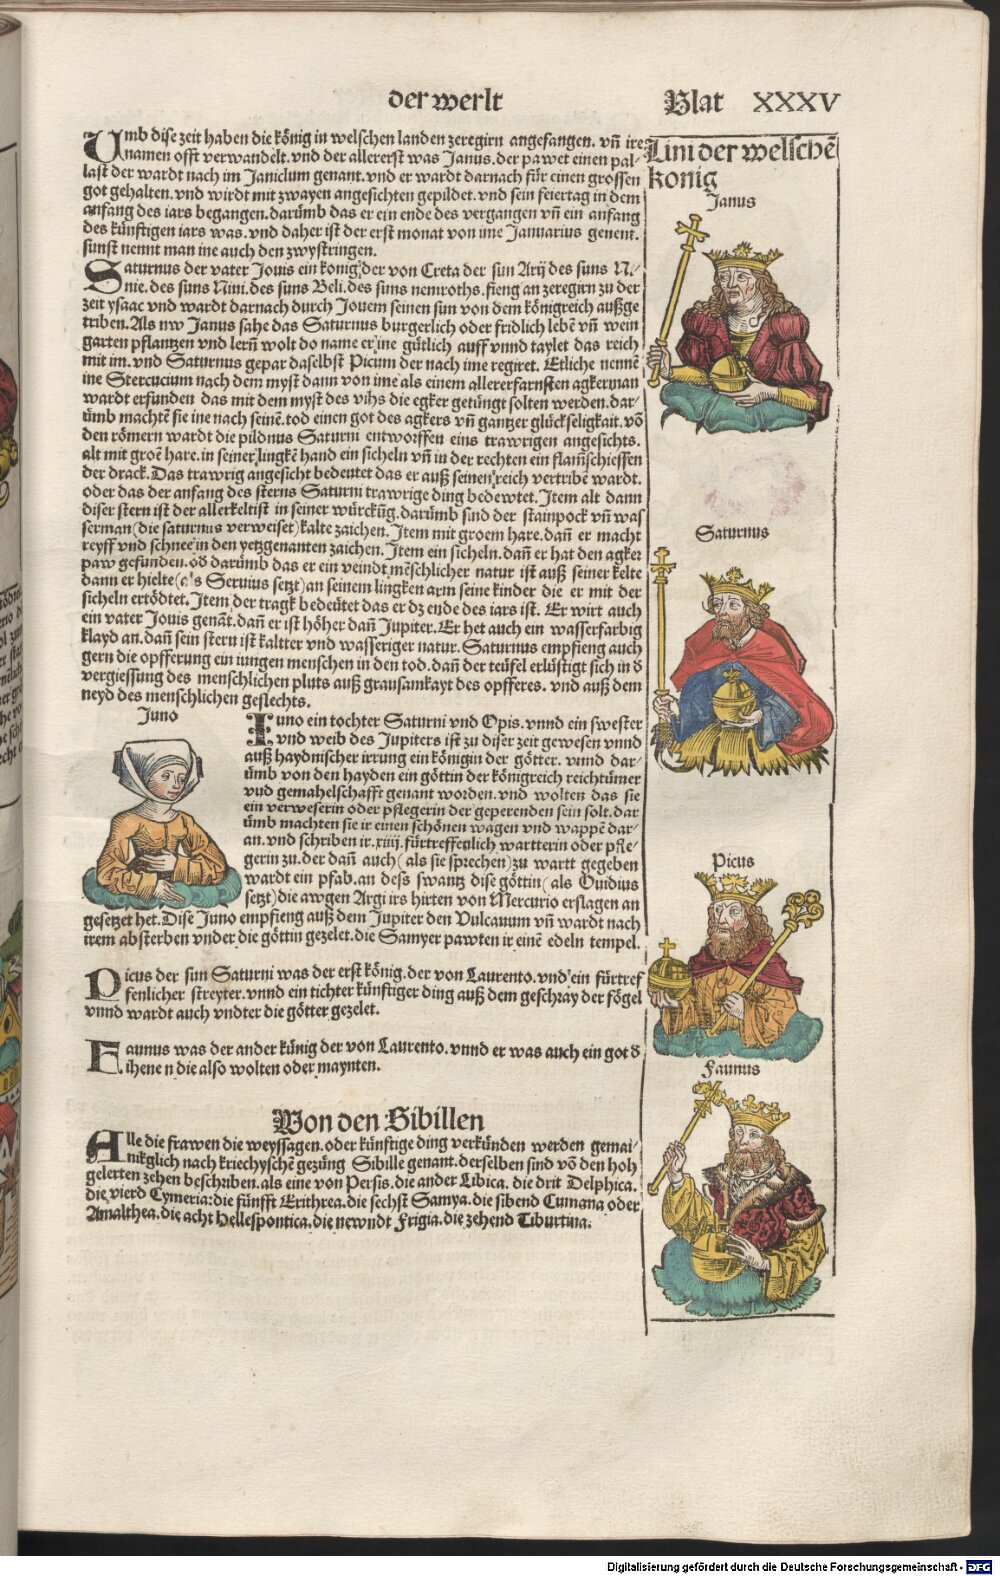 der werlt
Blat XXXV
Umb dise zeit haben die könig in welschen landen zeregirn angefangen. vñ ire
namen offt verwandelt. vnd der allererst was Janus. der pawet einen pal-
last der wardt nach im Janiclum genant. vnd er wardt darnach für einen grossen
got gehalten. vnd wirdt mit zwayen angesichten gepildet. vnd sein feiertag in dem
anfang des iars begangen. darümb das er ein ende des vergangen vñ ein anfang
des künftigen iars was. vnd daher ist der erst monat von ime Januarius genent.
sunst nennt man ine auch den zwystringen.
Saturnus der vater Jouis ein konig der von Creta der sun Arij des suns Ni-
nie. des suns Nini. des suns Beli. des suns nemroths. fieng an zeregirn zu der
zeit ysaac vnd wardt darnach durch Jouem seinen sun von dem königreich außge
triben. Als nw Janus sahe das Saturnus burgerlich oder fridlich lebē vñ wein
garten pflantzen vnd lern̄ wolt do name er ine gütlich auff vnnd taylet das reich
mit im. vnd Saturnus gepar daselbst Picum der nach ime regiret. Etliche nennē
ine Stercucium nach dem myst dann von ime als einem allererfarnsten agkerman
wardt erfunden das mit dem myst des vihs die egker getüngt solten werden. dar-
ümb machtē sie ine nach seinē. tod einen got des agkers vñ gantzer glückseligkait. vō
den römern wardt die pildnus Saturni entworffen eins trawrigen angesichts.
alt mit groē hare. in seiner lingkē hand ein sicheln vñ in der rechten ein flam̄schiessen
der drack. Das trawrig angesicht bedeutet das er auß seinen reich vertribē wardt.
oder das der anfang des sterns Saturni trawrige ding bedewtet. Item alt dann
diser stern ist der allerkeltist in seiner würckūg. darümb sind der stainpock vñ was
serman (die saturnus verweiset) kalte zaichen. Item mit groem hare. dañ er macht
reyff vnd schnee in den yetzgenanten zaichen. Item ein sicheln. dañ er hat den agker
paw gefunden. od darümb das er ein veindt mēschlicher natur ist auß seiner kelte
dann er hielte (als Seruius setzt) an seinem lingken arm seine kinder die er mit der
sicheln ertödtet. Item der tragk bedeütet das er dz ende des iars ist. Er wirt auch
ein vater Jouis genāt. dañ er ist höher dañ Jupiter. Er het auch ein wasserfarbig
klayd an. dañ sein stern ist kaltter vnd wasseriger natur. Saturnus empfieng auch
gern die opfferung ein iungen menschen in den tod. dañ der teüfel erlüstigt sich in d
vergiessung des menschlichen pluts auß grausamkayt des opfferes. vnd auß dem
neyd des menschlichen geslechts.
Juno
Iuno ein tochter Saturni vnd Opis. vnnd ein swester
vnd weib des Jupiters ist zu diser zeit gewesen vnnd
auß haydnischer irrung ein königin der götter. vnnd dar-
ümb von den hayden ein göttin der königreich reichtümer
vnd gemahelschafft genant worden. vnd wolten das sie
ein verweserin oder pflegerin der geperenden sein solt. dar
ümb machten sie ir einen schönen wagen vnd wappē dar-
an. vnd schriben ir. xiiij. fürtreffenlich wartterin oder pfle-
gerin zu. der dañ auch (als sie sprechen) zu wartt gegeben
wardt ein pfab. an dess swantz dise göttin (als Ouidius
setzt) die awgen Argi irs hirten von Mercurio erslagen an
gesetzet het. Dise Juno empfieng auß dem Jupiter den Vulcanum vñ wardt nach
irem absterben vnder die göttin gezelet. die Samyer pawten ir einē edeln tempel.
Picus der sun Saturni was der erst könig. der von Laurento. vnd ein fürtref
fenlicher streyter. vnnd ein tichter künftiger ding auß dem geschray der fögel
vnnd wardt auch vndter die götter gezelet.
Faunus was der ander künig der von Laurento. vnnd er was auch ein got d
ihenen die also wolten oder maynten.
Von den Sibillen
Alle die frawen die weyssagen. oder künftige ding verkünden werden gemai-
nikglich nach kriechyschē gezüng Sibille genant. derselben sind vō den hoh
gelerten zehen beschriben. als eine von Persis. die ander Libica. die drit Delphica.
die vierd Cymeria: die fünfft Erithrea. die sechst Samya. die sibend Cumana oder
Amalthea. die acht Hellespontica. die newndt Frigia. die zehend Tiburtina.
Lini der welschē
konig
Janus
Saturnus
Picus
Faunus
Digitalisierung gefördert durch die Deutsche Forschungsgemeinschaft - DFG